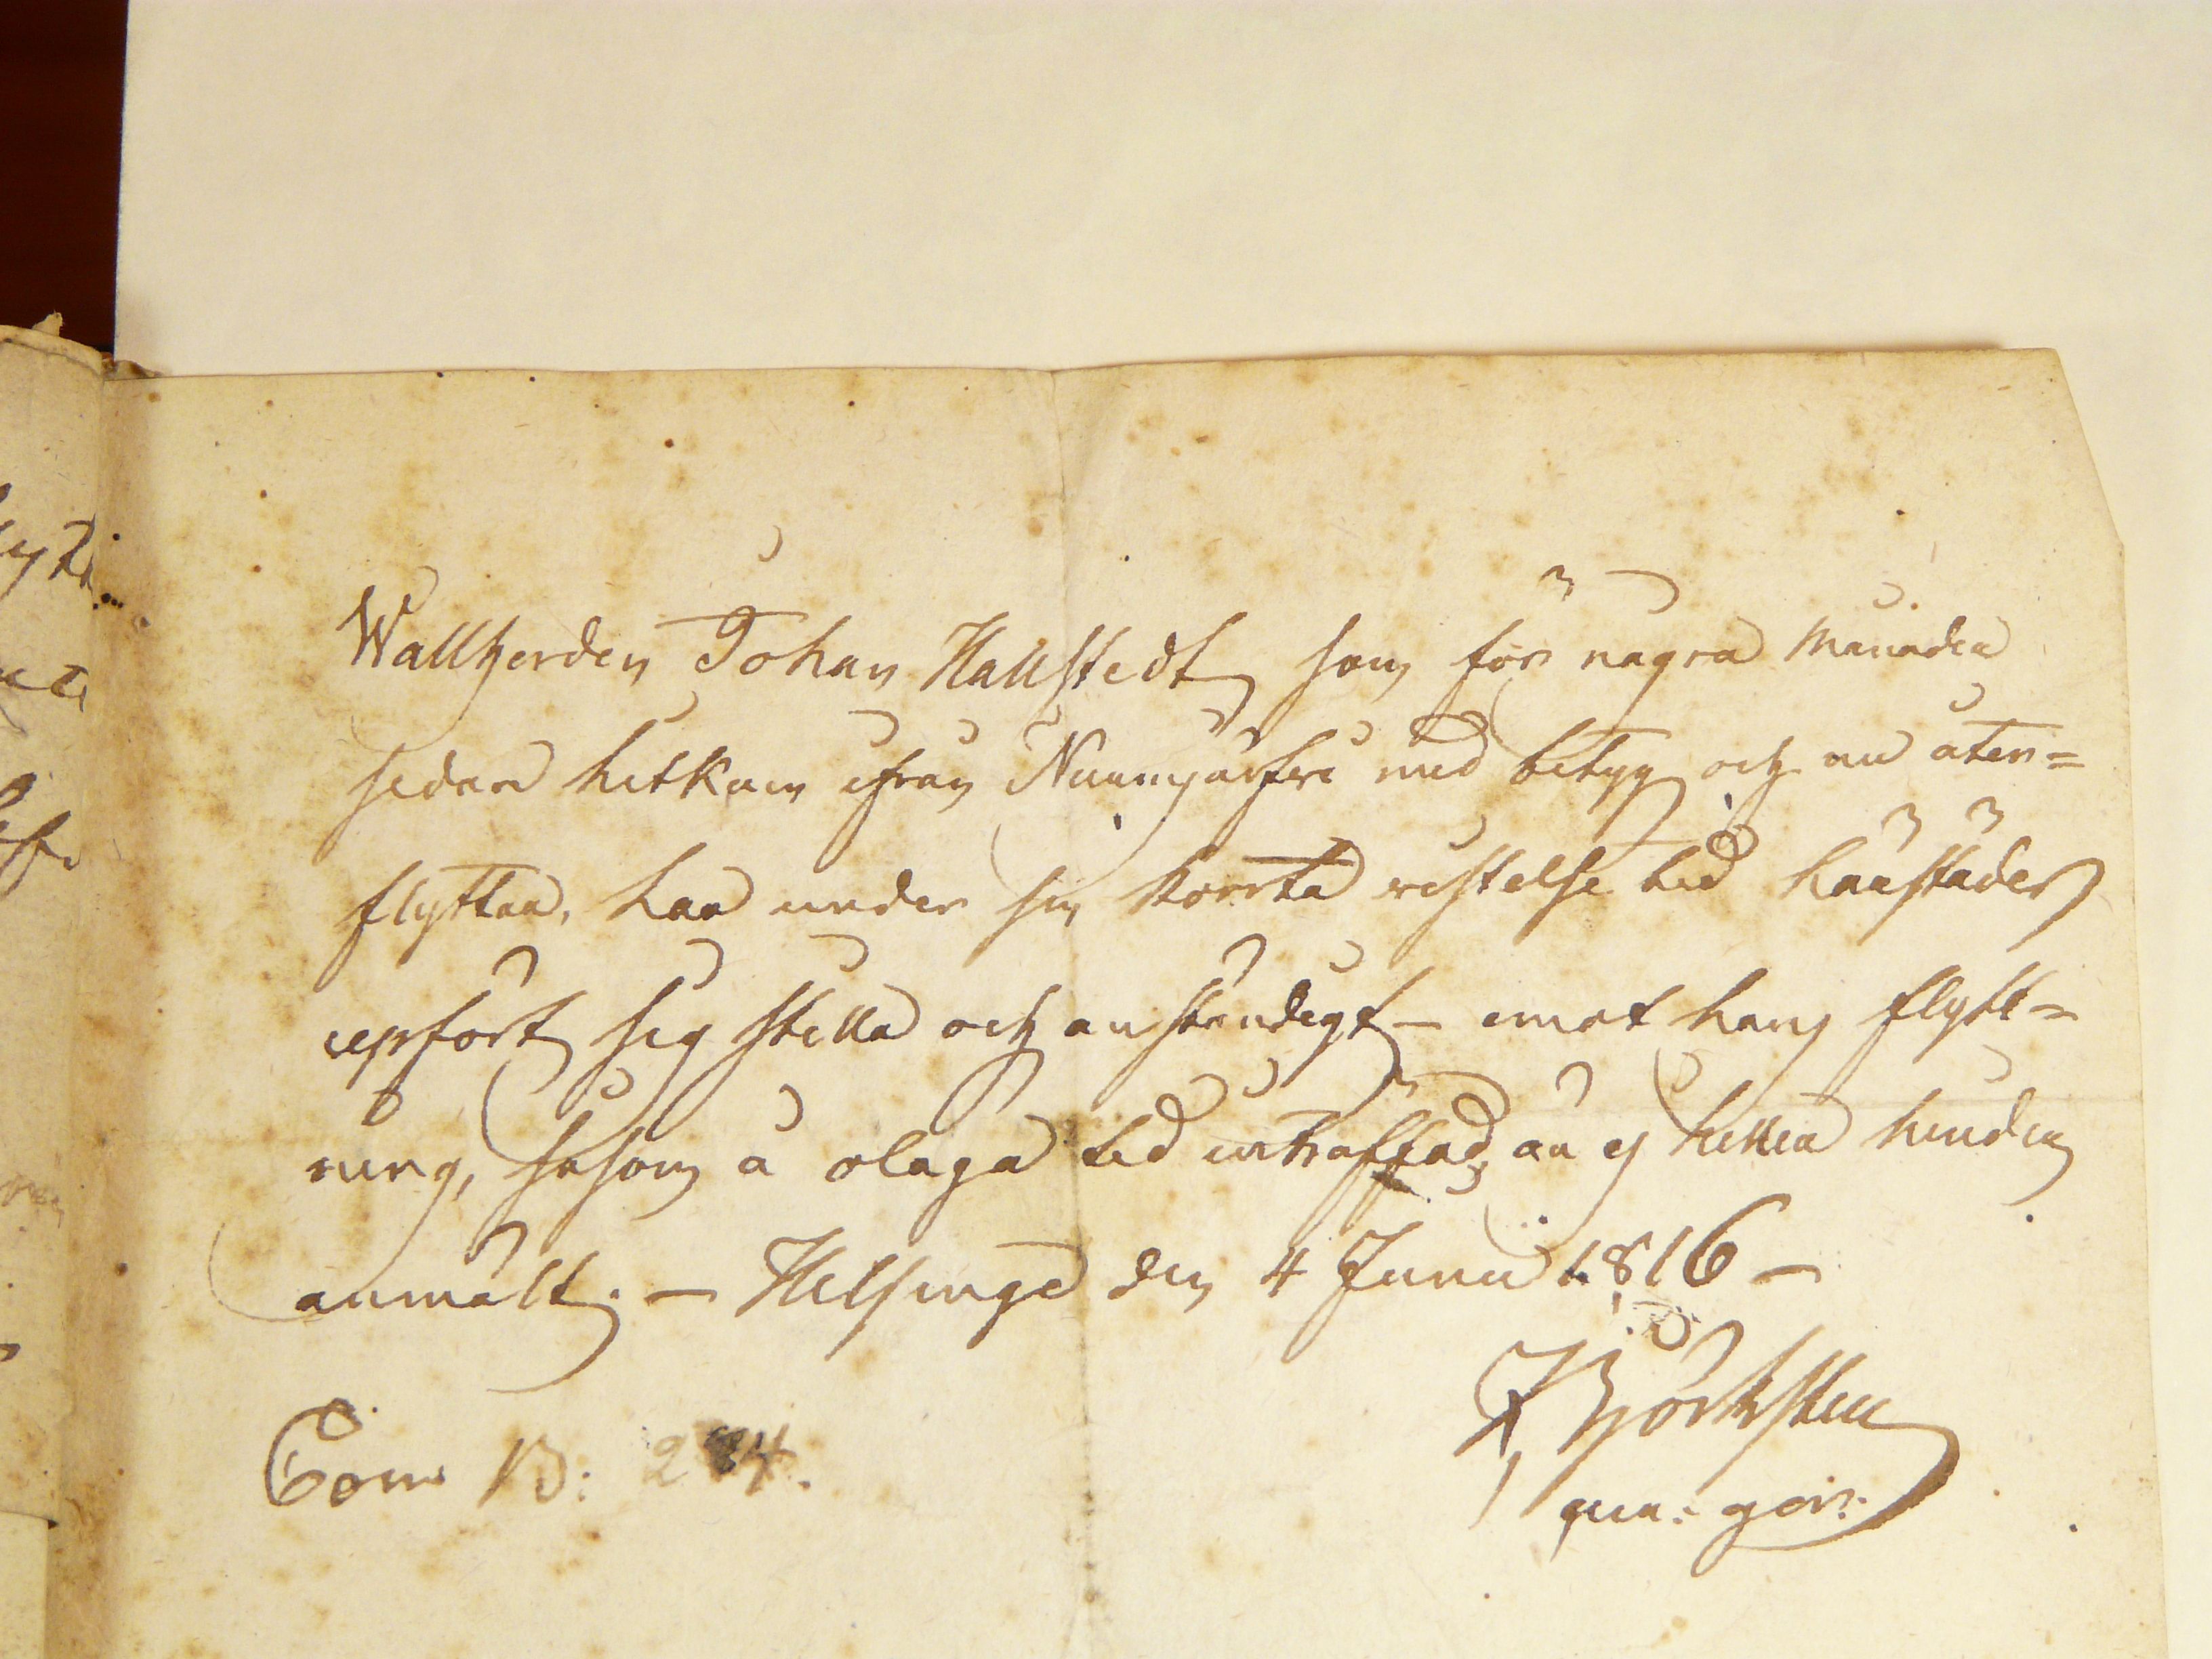 Wallherden Johan Hallstedt som för några månader
sedan hitkom ifrån Nummjärfvi med betyg och nu åter=
flyttar, har under sin korrta vistelse tid härstädes
uppfört sig stilla och anständigt – emot hans flytt=
ning, såsom å olaga tid inträffad, är ej heller hinder
anmält. – Helsinge den 4 Junii 1816 –
Björksten
Com B: 2